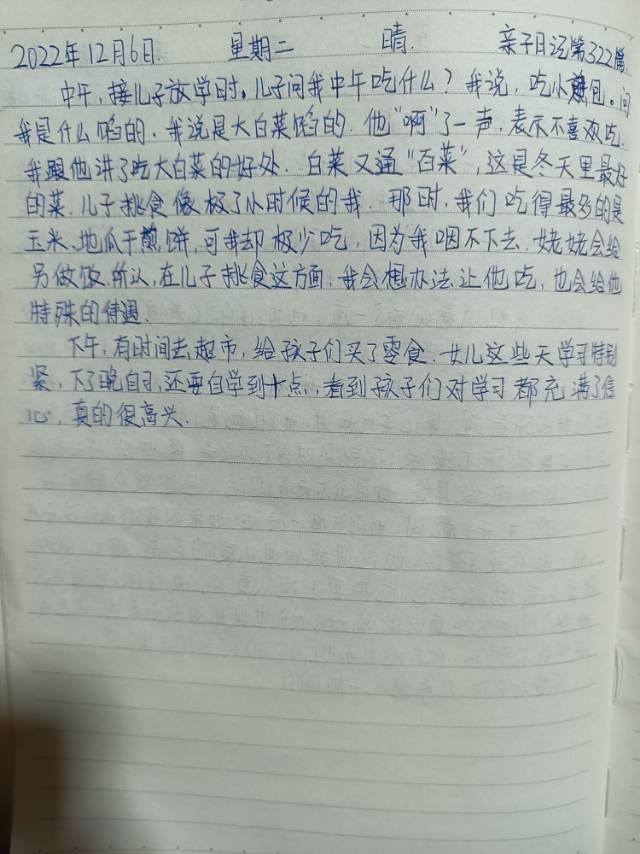 2022年12月6日 星期二 晴. 亲子日记第322篇
中午,接儿子放学时。儿子问我中午吃什么?我说,吃小煎包。问
我是什么馅的.我说是大白菜馅的.他“啊”了一声.表示不喜欢吃.
我跟他讲了吃大白菜的好处.白菜又通“百菜”,这是冬天里最好
的菜.儿子挑食像极了小时候的我.那时,我们吃得最多的是
玉米、地瓜干煎饼,可我却极少吃,因为我咽不下去.姥姥会给
另做饭.所以,在儿子挑食这方面.我会想办法让他吃,也会给他
特殊的待遇.
下午,有时间去超市,给孩子们买了零食.女儿这些天学习特别
紧,下了晚自习,还要自学到十点,看到孩子们对学习都充满了信
心,真的很高兴.